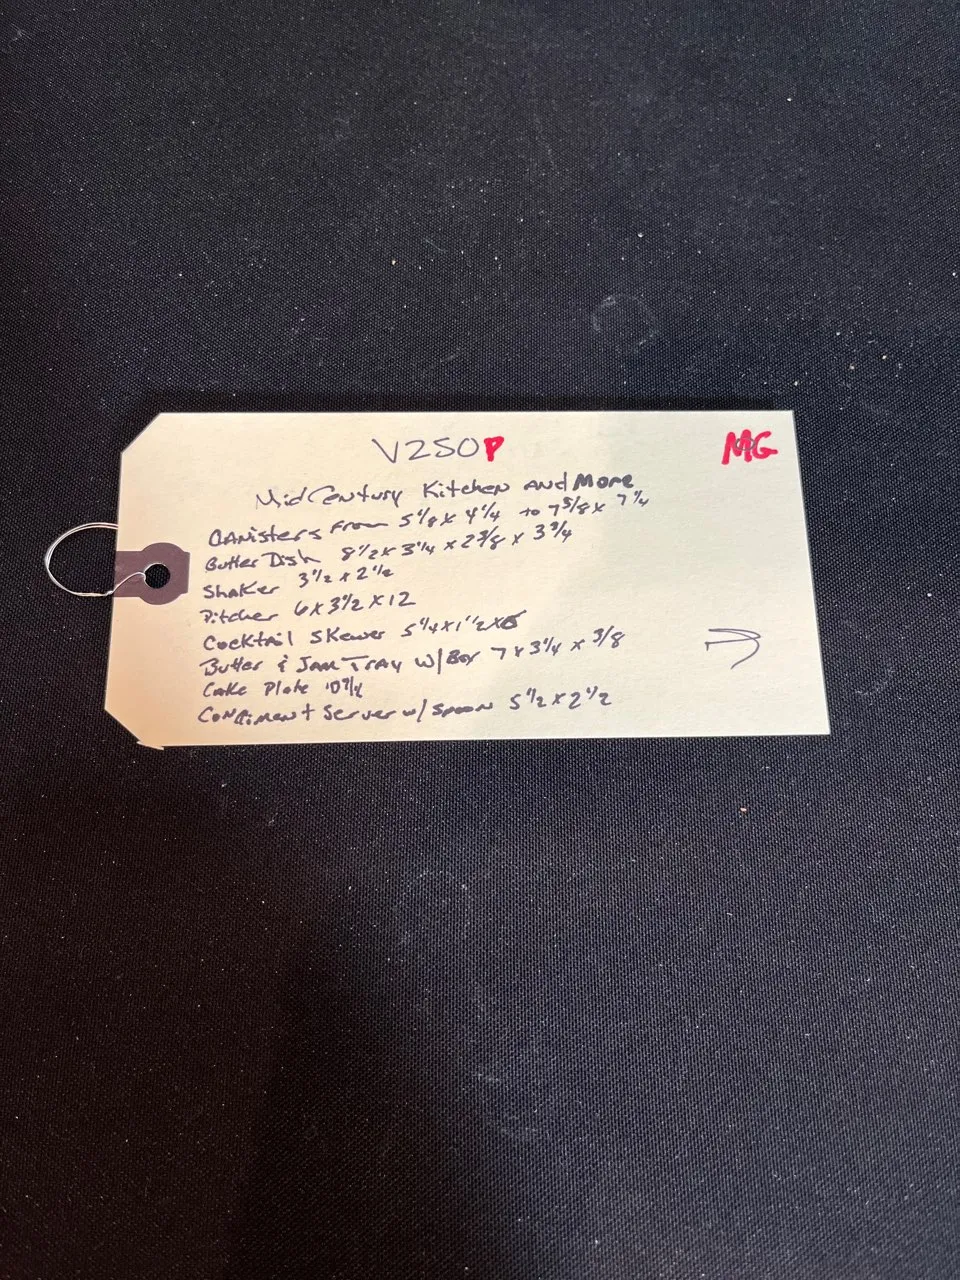 V250P
MG
Mid Century Kitchen and More
Canisters From 5 1/8 x 4 1/4 to 7 5/8 x 7 1/4
Butter Dish 8 1/2 x 3 1/4 x 2 3/8 x 3 3/4
Shaker 3 1/2 x 2 1/2
Pitcher 6 x 3 1/2 x 12
Cocktail Skewer 5 1/4 x 1 1/2 x
Butter & Jam Tray w/ Box 7 x 3 1/4 x 3/8
Cake Plate
Condiment Server w/ spoon 5 1/2 x 2 1/2